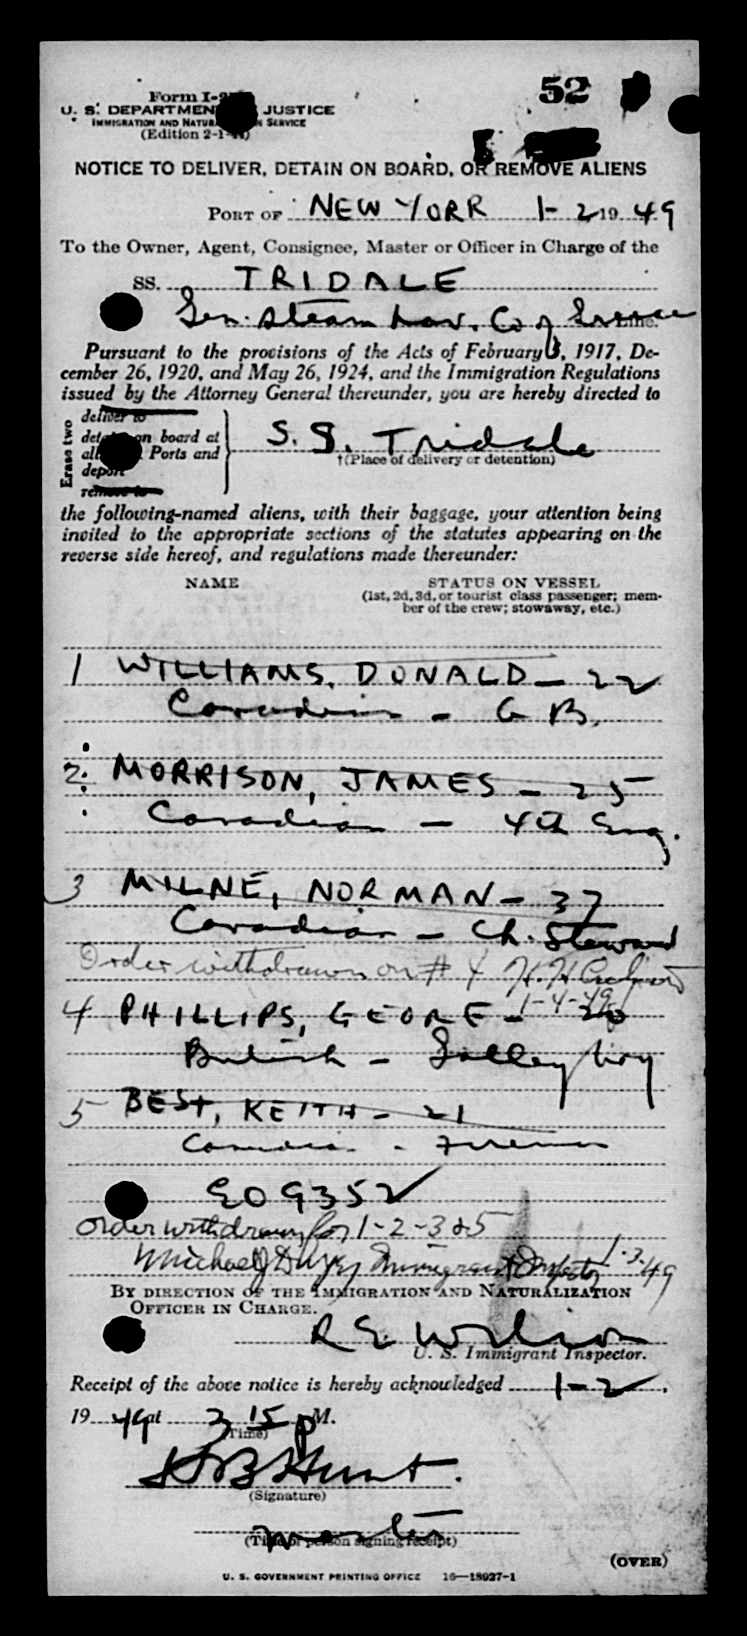 52
Form I-2
U. S. DEPARTMENT JUSTICE
IMMIGRATION AND NATURALIZATION SERVICE
(Edition 2-1-)
NOTICE TO DELIVER, DETAIN ON BOARD, OR REMOVE ALIENS
PORT OF NEW YORK 1-2 1949
To the Owner, Agent, Consignee, Master or Officer in Charge of the
SS. TRIDALE
Gen. Steam Nav. Co of Greece Line.
Pursuant to the provisions of the Acts of February 5, 1917, De-
cember 26, 1920, and May 26, 1924, and the Immigration Regulations
issued by the Attorney General thereunder, you are hereby directed to
Erase two
deliver to
detain on board at
all Ports and
deport
remove to
S.S. Tridale
†(Place of delivery or detention)
the following-named aliens, with their baggage, your attention being
invited to the appropriate sections of the statutes appearing on the
reverse side hereof, and regulations made thereunder:
NAME STATUS ON VESSEL
(1st, 2d, 3d, or tourist class passenger; mem-
ber of the crew; stowaway, etc.)
1 WILLIAMS, DONALD - 22
Canadian - G B.
2 MORRISON, JAMES - 25
Canadian - 4th Eng.
3 MILNE, NORMAN - 37
Canadian - Ch. Steward
Order withdrawn on # 4 H. H.
1-4-49
4 PHILLIPS, GEORE - 20
British - Galley boy
5 BEST, KEITH - 21
Canadian - Fireman
E09352
Order withdrawn for 1-2-3 & 5
Michael J Immigrant Inspector 1-3-49
BY DIRECTION OF THE IMMIGRATION AND NATURALIZATION
OFFICER IN CHARGE.
R E Wilson
U. S. Immigrant Inspector.
Receipt of the above notice is hereby acknowledged 1-2,
1949 at 3 15 p M.
(Time)
H B Hunt.
(Signature)
master
(Title of person signing receipt)
(OVER)
U. S. GOVERNMENT PRINTING OFFICE 16—18927-1